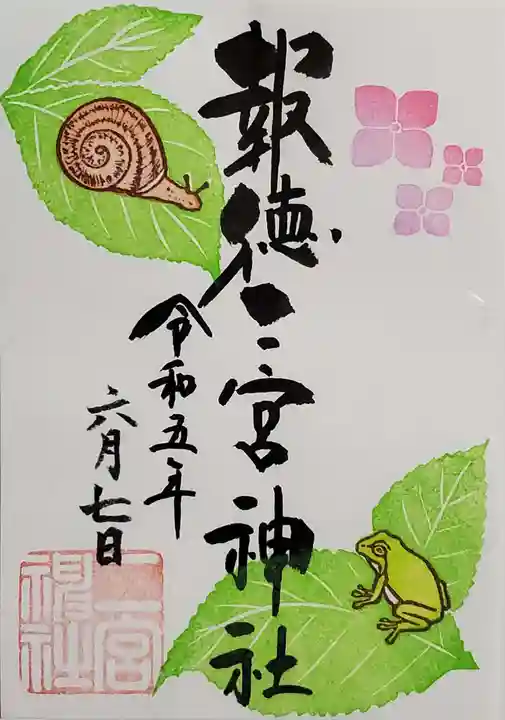 報徳二宮神社
令和五年
六月七日
二宮
神社